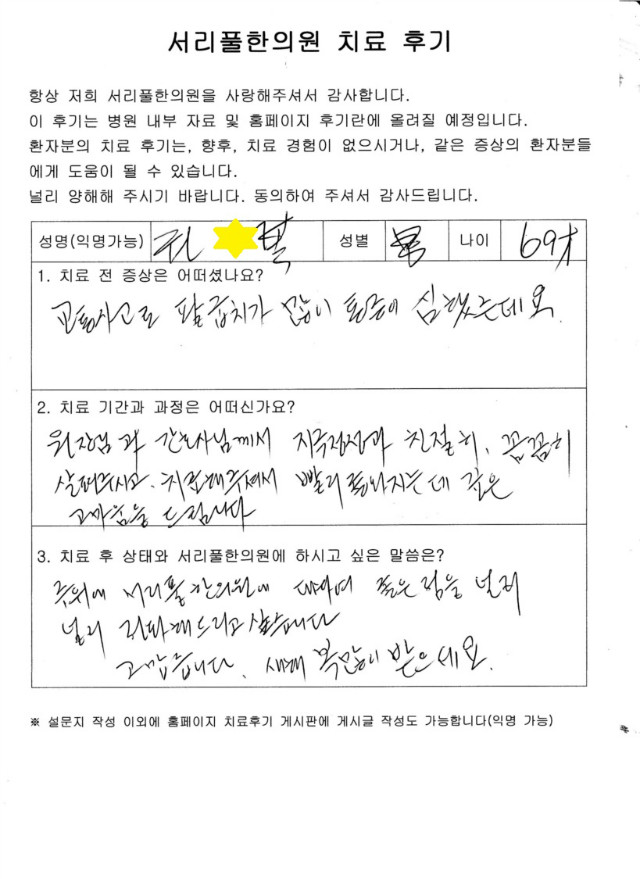 서리풀한의원 치료 후기
항상 저희 서리풀한의원을 사랑해주셔서 감사합니다.
이 후기는 병원 내부 자료 및 홈페이지 후기란에 올려질 예정입니다.
환자분의 치료 후기는, 향후, 치료 경험이 없으시거나, 같은 증상의 환자분들
에게 도움이 될 수 있습니다.
널리 양해해 주시기 바랍니다. 동의하여 주셔서 감사드립니다.
성명(익명가능) 성별 男 나이 69才
1. 치료 전 증상은 어떠셨나요?
교통사고로 팔굽치가 많이 통증이 심했는데요.
2. 치료 기간과 과정은 어떠신가요?
원장님과 간호사님께서 지극정성과 친절히, 꼼꼼히
살펴주시고, 치료해주셔서 빨리 좋아지는데 깊은
고마움을 드립니다
3. 치료 후 상태와 서리풀한의원에 하시고 싶은 말씀은?
주위에 서리풀한의원에 대하여 좋은 점을 널리
널리 전파해드리고 싶습니다
고맙습니다. 새해 복많이 받으세요.
※ 설문지 작성 이외에 홈페이지 치료후기 게시판에 게시글 작성도 가능합니다(익명 가능)